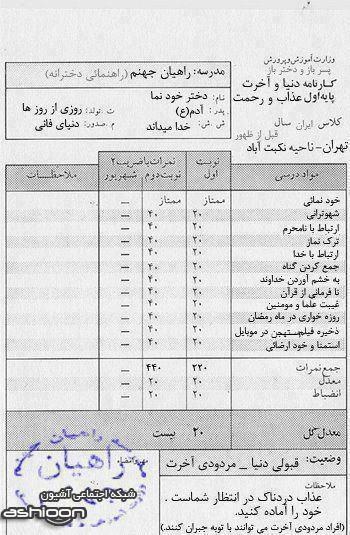 وزارت آموزش و پرورش
پسر باز و دختر باز
کارنامه دنیا و آخرت
پایه اول عذاب و رحمت
کلاس ایران سال
قبل از ظهور
تهران - ناحیه نکبت آباد
مدرسه: راهیان جهنم (راهنمائی دخترانه)
نام: دختر خود نما
پدر: آدم(ع) ت.تولد: روزی از روز ها
ش.ش: خدا میداند م.صدور: دنیای فانی
مواد درسی نوبت اول نمرات با ضریب ۲ نوبت دوم شهریور ملاحظات
خود نمائی ممتاز ممتاز —
شهوترانی ۲۰ ۴۰ —
ارتباط با نامحرم ۲۰ ۴۰ —
ترک نماز ۲۰ ۴۰ —
ارتباط با خدا ۲۰ ۴۰ —
جمع کردن گناه ۲۰ ۴۰ —
به خشم آوردن خداوند ۲۰ ۴۰ —
نا فرمانی از قرآن ۲۰ ۴۰ —
غیبت علما و مومنین ۲۰ ۴۰ —
روزه خواری در ماه رمضان ۲۰ ۴۰ —
ذخیره فیلم مستهجن در موبایل ۲۰ ۴۰ —
استمنا و خود ارضائی ۲۰ ۴۰ —
جمع نمرات ۲۲۰ ۴۴۰ —
معدل ۲۰ ۲۰ —
انضباط ۲۰ ۲۰ —
معدل کل ۲۰ بیست
وضعیت: قبولی دنیا _ مردودی آخرت
مهر و امضاء
راهیان
ملاحظات
عذاب دردناک در انتظار شماست .
خود را آماده کنید.
(افراد مردودی آخرت می توانند با توبه جبران کنند.)
شبکه اجتماعی آشیون
ashioon